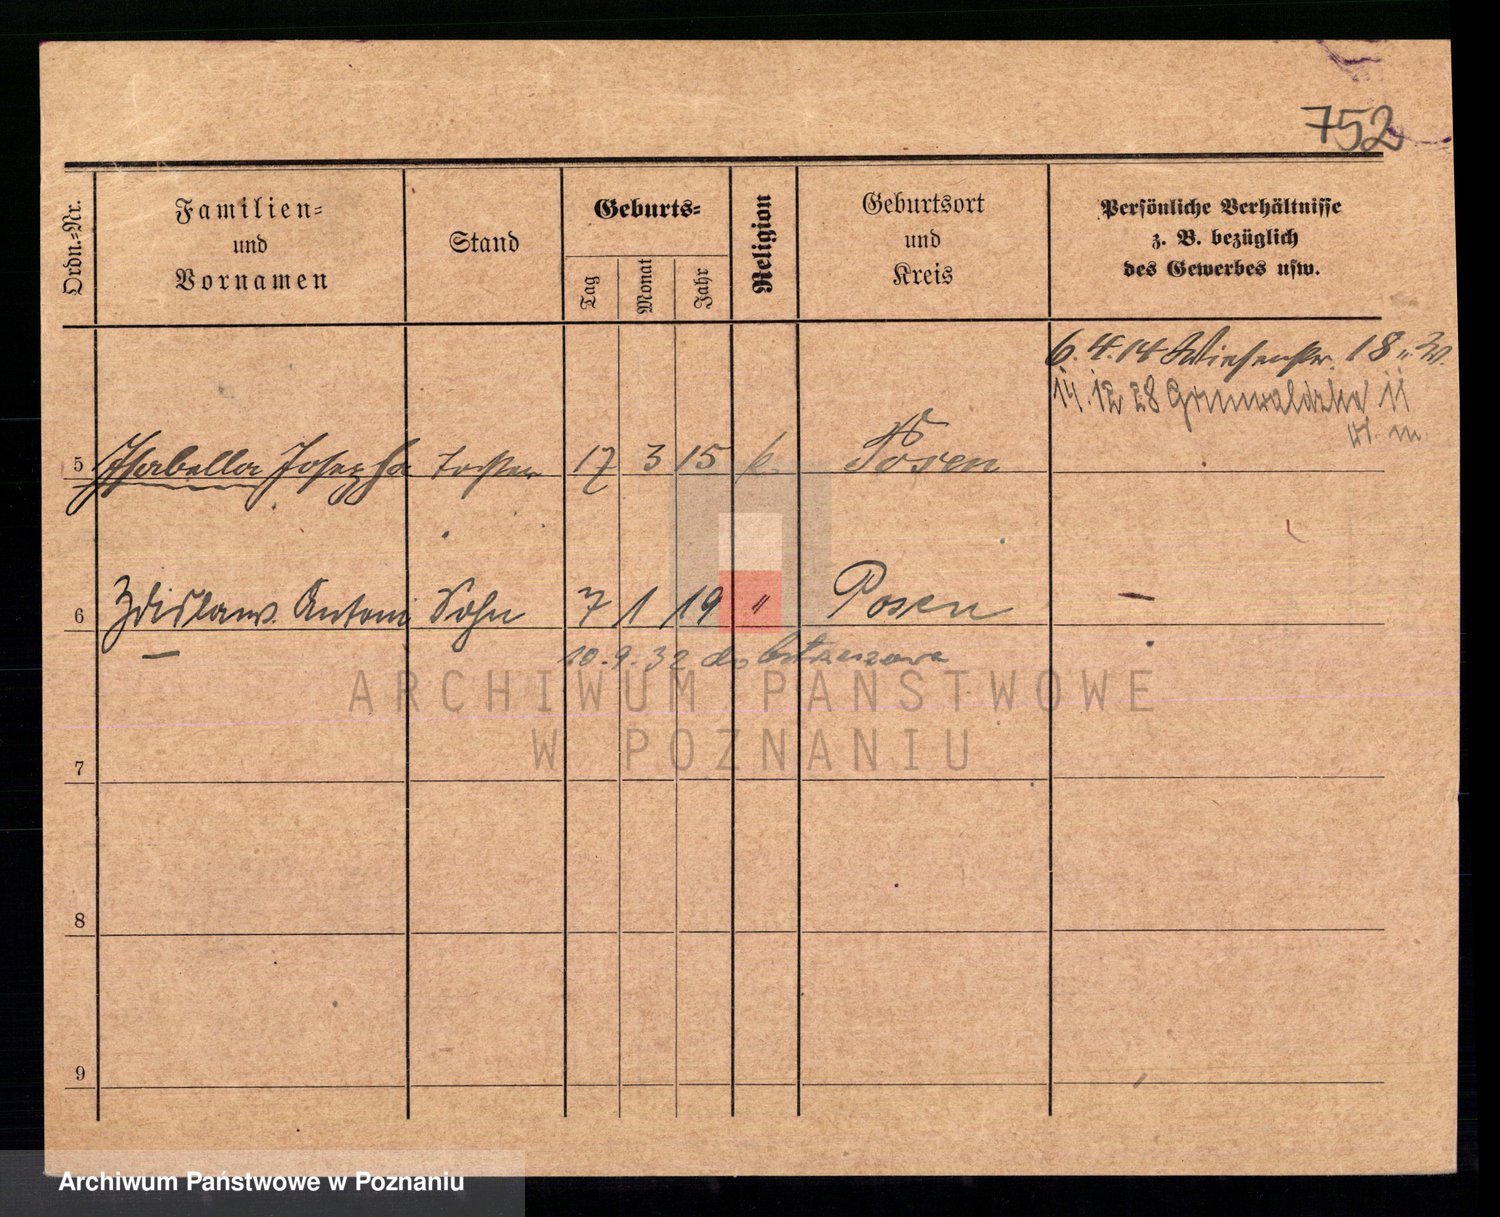 752
Ordn.-Nr.
Familien-
und
Vornamen
Stand
Geburts-
Tag
Monat
Jahr
Religion
Geburtsort
und
Kreis
Persönliche Verhältnisse
z. B. bezüglich
des Gewerbes usw.
6. 4. 14 Wiesenstr. 18
14. 12 28 Grunwaldzka 11
m.
5 Isabella Josepha Tochter 17 3 15 k. Posen
6 Zdislaw Antoni Sohn 7 1 19 " Posen —
10. 9. 32 do
ARCHIWUM PAŃSTWOWE
W POZNANIU
7
8
9
Archiwum Państwowe w Poznaniu